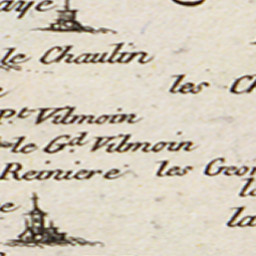 le Chaulin
les
P.t Vilmoin
le G.d Vilmoin
Reiniere les
la